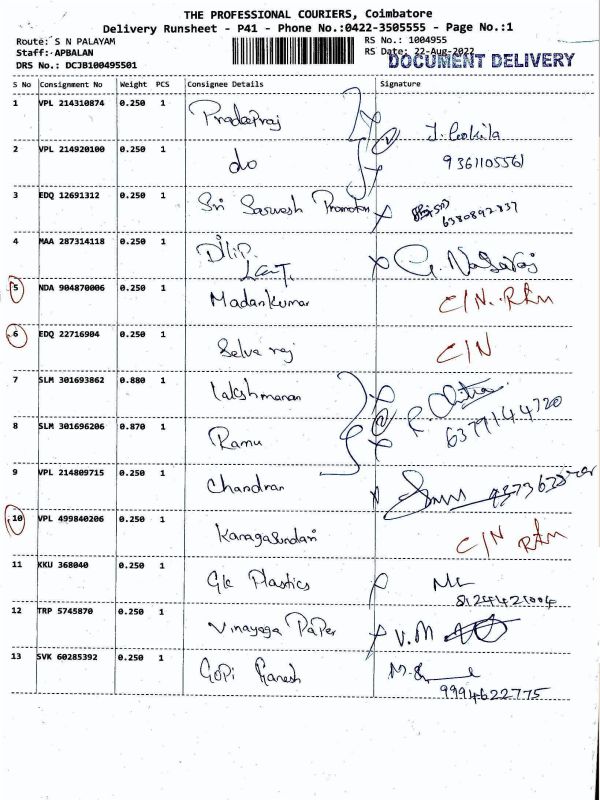 THE PROFESSIONAL COURIERS, Coimbatore
Delivery Runsheet - P41 - Phone No.:0422-3505555 - Page No.:1
Route: S N PALAYAM
Staff: APBALAN
DRS No.: DCJB100495501
RS No.: 1004955
RS Date: 22-Aug-2022
DOCUMENT DELIVERY
S No Consignment No Weight PCS Consignee Details Signature
1 VPL 214310874 0.250 1 Pradeepraj J. Gokila
2 VPL 214920100 0.250 1 do 9361105561
3 EDQ 12691312 0.250 1 Sri Sarwesh Promoters 6380892837
4 MAA 287314118 0.250 1 Dilip. G. Nagaraj
5 NDA 904870006 0.250 1 Madankumar C/N. RTM
6 EDQ 22716904 0.250 1 Selva raj C/N
7 SLM 301693862 0.880 1 Lakshmanan R. Chitra
8 SLM 301696206 0.870 1 Ramu 6379144720
9 VPL 214809715 0.250 1 Chandran
10 VPL 499840206 0.250 1 Kanagasundari C/N RTM
11 KKU 368040 0.250 1 Glc Plastics
8124421004
12 TRP 5745870 0.250 1 Vinayaga Paper V.M
13 SVK 60285392 0.250 1 Gopi Ganesh
9994622775